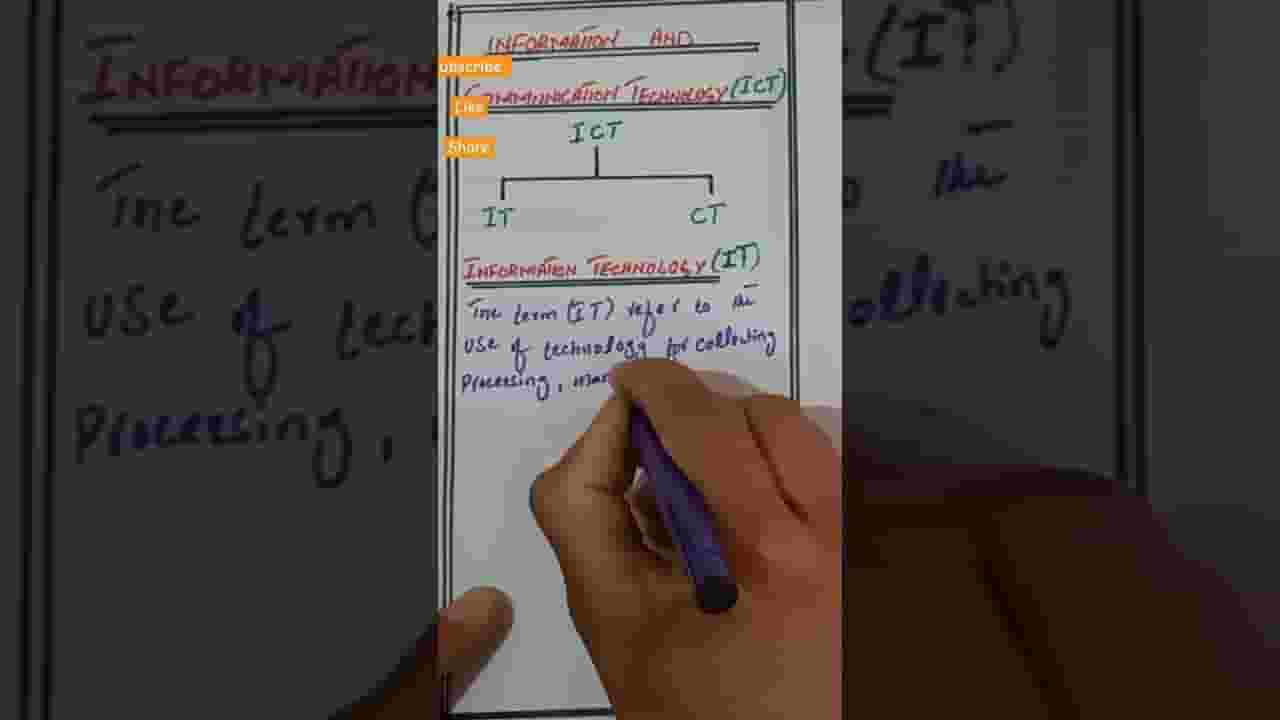 INFORMATION AND
ubscribe
COMMUNICATION TECHNOLOGY (ICT)
Like
ICT
Share
IT CT
INFORMATION TECHNOLOGY (IT)
The term (IT) refer to the
use of technology for collecting
Processing, man